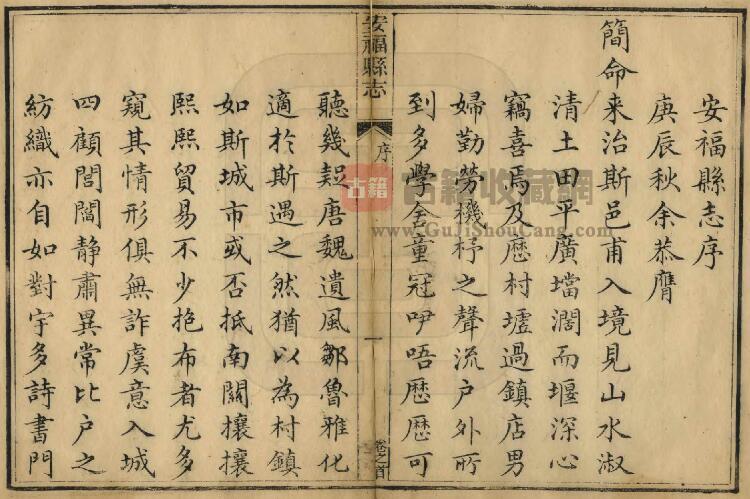 安福縣志序
庚辰秋余恭膺
簡命来治斯邑甫入境見山水淑
清土田平廣壋濶而堰深心
竊喜焉及歷村墟過鎮店男
婦勤勞機杼之聲流户外所
到多學舎童冠吚唔歷歷可
安福縣志
序
一
卷之首
聽幾疑唐魏遺風鄒魯雅化
適於斯遇之然猶以為村鎮
如斯城市或否抵南關攘攘
熙熙貿易不少抱布者尤多
窺其情形俱無詐虞意入城
四顧閭閻静肅異常比户之
紡織亦自如對宇多詩書門
古籍
古籍收藏網
www.GuJiShouCang.com